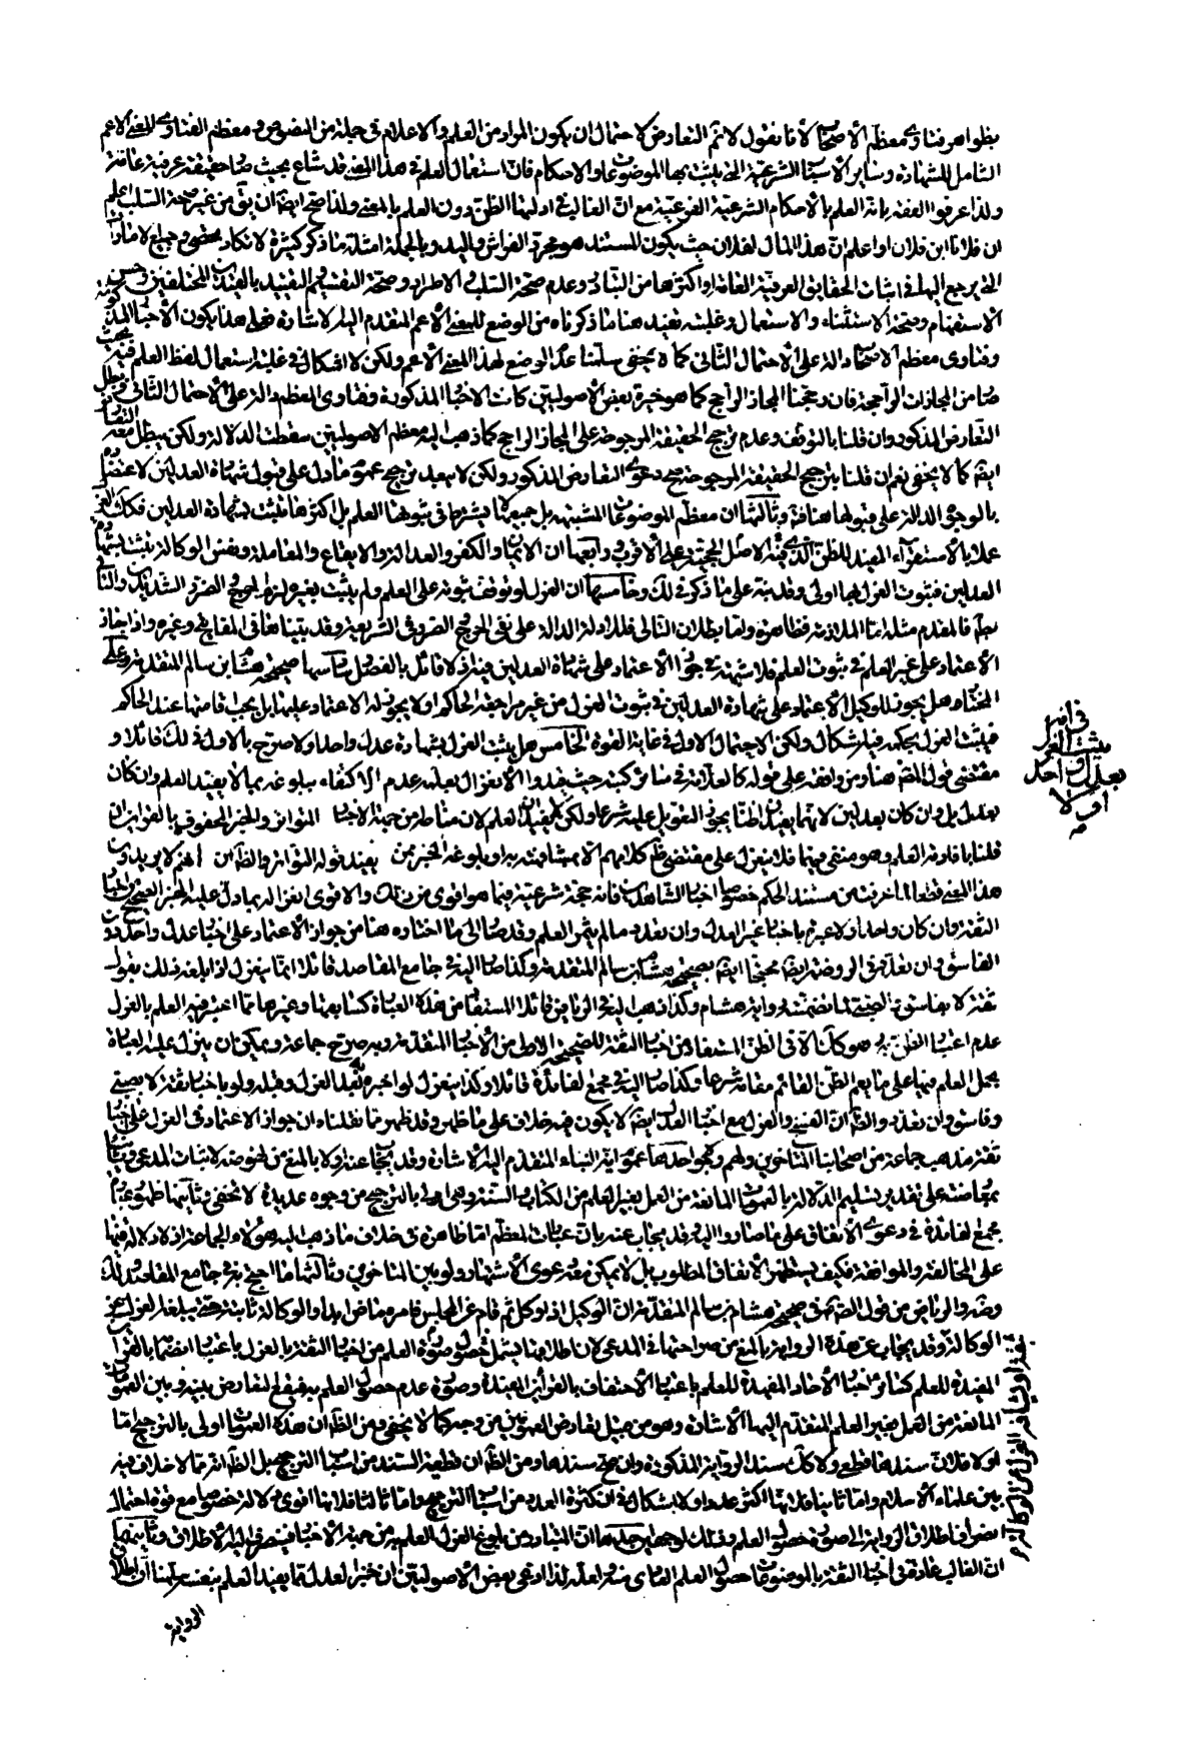 بظواهر فتاوى معظم الأصحاب لأنا نقول لا نم التعارض لاحتمال ان يكون المراد من العلم والاعلام في جملة من النصوص ومعظم الفتاوى المعنى الاعم
الشامل للشهادة وساير الأسباب الشرعية التي يثبت بها الموضوعات والاحكام فان استعمال العلم في هذا المعنى قد شاع بحيث صار حقيقة عرفية عامة
ولذا عرفوا الفقه بانه العلم بالأحكام الشرعية الفرعية مع ان الغالب في ادلتها الظن دون العلم بالمعنى ولذا صح ايضا ان يق من غير صحة السلب اعلم
ان فلانا ابن فلان او اعلم ان هذا المال لفلان حيث يكون المستند هو مجرد الفراش واليد وبالجملة امثلة ما ذكر كثيرة لا تكاد تحصى وجميع الامارات
التي يرجع اليها في اثبات الحقايق العرفية العامة او اكثرها من التبادر وعدم صحة السلب والاطراد وصحة التقسيم والتقييد بالقيدين المختلفين وحسن
الاستفهام وصحة الاستثناء والاستعمال وغلبته تفيد هنا ما ذكرناه من الوضع للمعنى الأعم المتقدم اليه الاشارة فعلى هذا يكون الأخبار المذكورة
وفتاوى معظم الاصحاب دالة على الاحتمال الثاني كما لا يخفى سلمنا عدم الوضع لهذا المعنى الأعم ولكن لا اشكال في غلبة استعمال لفظ العلم فيه بحيث
صار من المجازات الراجحة فان رجحنا المجاز الراجح كما هو خيرة بعض الأصوليين كانت الاخبار المذكورة وفتاوى المعظم دالة على الأحتمال الثاني ويبطل
التعارض المذكور وان قلنا بالتوقف وعدم ترجيح الحقيقة المرجوحة على المجاز الراجح كما ذهب اليه معظم الاصوليين سقطت الدلالة ولكن يبطل معه التعارض
ايضا كما لا يخفى نعم ان قلنا بترجيح الحقيقة المرجوحة صح دعوى التعارض المذكور ولكن لا يبعد ترجيح عموم ما دل على قبول شهادة العدلين لاعتضاده
بالوجوه الدالة على قبولها هنا وثالثها ان معظم الموضوعات المشتبهة بل جميعها يشترط في ثبوتها العلم بل اكثرها يثبت بشهادة العدلين فكذلك العزل
عملا بالأستقراء المفيد للظن الذي فيه الاصل الحجية على الأقرب ورابعها ان الايمان والكفر والعدالة والايقاع والمعاملة ونفس الوكالة تثبت بشهادة
العدلين فثبوت العزل بها اولى وقد نبه على ما ذكر في لك وخامسها ان العزل لو توقف ثبوته على العلم ولم يثبت بغيره لزم الحرج والضرر الشديدان والتالي
بط فالمقدم مثله اما الملازمة فظاهرة واما بطلان التالي فللادلة الدالة على نفي الحرج والضرر في الشريعة وقد بيناها في المفاتيح وغيره واذا جاز
الأعتماد على غير العلم في ثبوت العلم فلا شبهة في جواز الأعتماد على شهادة العدلين فيه اذ لا قائل بالفصل وسادسها صحيحة هشام بن سالم المتقدمة وعلى
المختار هل يجوز للوكيل الأعتماد على شهادة العدلين في ثبوت العزل من غير مراجعة الحاكم او لا يجوز له الاعتماد عليها بل يجب اقامتها عند الحاكم
فيثبت العزل بحكمه فيه اشكال ولكن الاحتمال الاول في غاية القوة الخامس هل يثبت العزل بشهادة عدل واحد او لا صرح بالاول في لك قائلا و
مقتضى قول المص هنا ومن وافقه على قوله كالعلامة في سائر كتبه حيث قيدوا الانعزال بعلمه عدم الاكتفاء ببلوغه بما لا يفيد العلم وان كان
بعدل بل وان كان بعدلين لانهما يفيدان ظنا يجوز التعويل عليه شرعا ولكن لا يفيدان العلم لان مناطه من جهة الاخبار المتواتر والخبر المحفوف بالقراين ان
قلنا بافادته العلم وهو منتفي فيهما فلا ينعزل على مقتضى ظاهر كلامهم الا بمشافهته به او بلوغه الخبر ممن يفيد قوله التواتر والظاهر ان اهم لا يريدون
هذا المعنى قطعا لما عرفت من مستند الحكم خصوصا اخبار الشاهدين فانه حجة شرعية فيما هو اقوى من ذلك والاقوى انعزاله بما دل عليه الخبر الصحيح من اخبار
الثقة وان كان واحدا ولا عبرة باخبار غير العدل وان تعدد ما لم يثمر العلم وقد صار الى ما اختاره هنا من جواز الأعتماد على اخبار عدل واحد دون
الفاسق وان تعدد في الروضة ايضا محتجا ايضا بصحيحة هشام بن سالم المتقدمة وكذا صار اليه في جامع المقاصد قائلا انما ينعزل اذا بلغه ذلك بقول
ثقة لا بفاسق والصبي لما تضمنته رواية هشام وكذا ذهب اليه في الرياض قائلا المستفاد من هذه العبارة كنايعها وغيرها مما اعتبر فيه العلم بالعزل
عدم اعتبار الظن به وهو كذلك الا في الظن المستفاد من اخبار الثقة للصحيحة الاولى من الأخبار المتقدمة وبه صرح جماعة ويمكن ان ينزل عليه العبارة
بحمل العلم فيها على ما يعم الظن القائم مقامه شرعا وكذا صار اليه في مجمع الفائدة قائلا وكذا ينعزل لو اخبره ثقة بعد العزل وقبله ولو باخبار ثقة لا بصبي
وفاسق وان تعدد والظاهر ان الصبي والعزل مع اخبار العدل ايضا لا يكون فيه خلاف على ما ظهر وقد ظهر مما نقلناه ان جواز الاعتماد في العزل على اخبار
ثقة مذهب جماعة من اصحابنا المتأخرين ولهم وجوه احدها عموم اية النباء المتقدم اليه الاشارة وقد يجاب عنه اولا بالمنع من نهوضه لاثبات المدعى وثانيا
بمعارضته على تقدير تسليم الدلالة بالعمومات المانعة من العمل بغير العلم من الكتاب والسنة وهي اولى بالترجيح من وجوه عديدة لا تخفى وثانيها ظهور عبارة
مجمع الفائدة في دعوى الأتفاق على ما صاروا اليه وقد يجاب عنه بان عبارات المعظم اما ظاهرة في خلاف ما ذهب اليه هؤلاء الجماعة او لا دلالة فيها
على المخالفة والموافقة فكيف يستظهر الأتفاق المطلوب بل لا يمكن معه دعوى الأشتهار ولو بين المتاخرين وثالثها ما احتج به في جامع المقاصد ولك
وضه والرياض من قول الصادق في صحيحة هشام بن سالم المتقدمة ان الوكيل اذا وكل ثم قام عن المجلس فامره ماض ابدا والوكالة ثابتة حتى يبلغه العزل عن
الوكالة بثقة او يشافه بالعزل عن الوكالة
الوكالة وقد يجاب عن هذه الرواية بالمنع من صراحتها في المدعى لان اطلاقها يشمل خصوص صورة العلم من اخبار الثقة بالعزل باعتبار انضمام القراين
المفيدة للعلم كسائر اخبار الأحاد المفيدة للعلم باعتبار الأحتفاف بالقراين المفيدة وصورة عدم حصول العلم به فيقع التعارض بينه وبين العمومات
المانعة من العمل بغير العلم المتقدم اليها الأشارة وهو من قبيل تعارض العمومين من وجه كما لا يخفى ومن الظاهر ان هذه العمومات اولى بالترجيح اما
اولا فلان سندها قطعي ولا كذلك سند الرواية المذكورة وان صح سندها ومن الظاهر ان قطعية السند من اسباب الترجيح بل الظاهر انه مما لا خلاف فيه
بين علماء الأسلام واما ثانيا فلانها اكثر عددا ولا اشكال في ان كثرة العدد من اسباب الترجيح واما ثالثا فلانها اقوى دلالة خصوصا مع قوة احتمال
انصراف اطلاق الرواية الى صورة حصول العلم وذلك لوجهين احدهما ان المتبادر من بلوغ العزل العلم به من جهة الأخبار فينصرف اليه الأطلاق وثانيهما
ان الغالب عادة في اخبار الثقة بالموضوعات حصول العلم العادي منه ولعله لذا ادعى بعض الأصوليين ان خبر العدل مما يفيد العلم بنفسه سلمنا ان اطلاق
الرواية
في انه
يثبت العزل
بعدل واحد
او لا